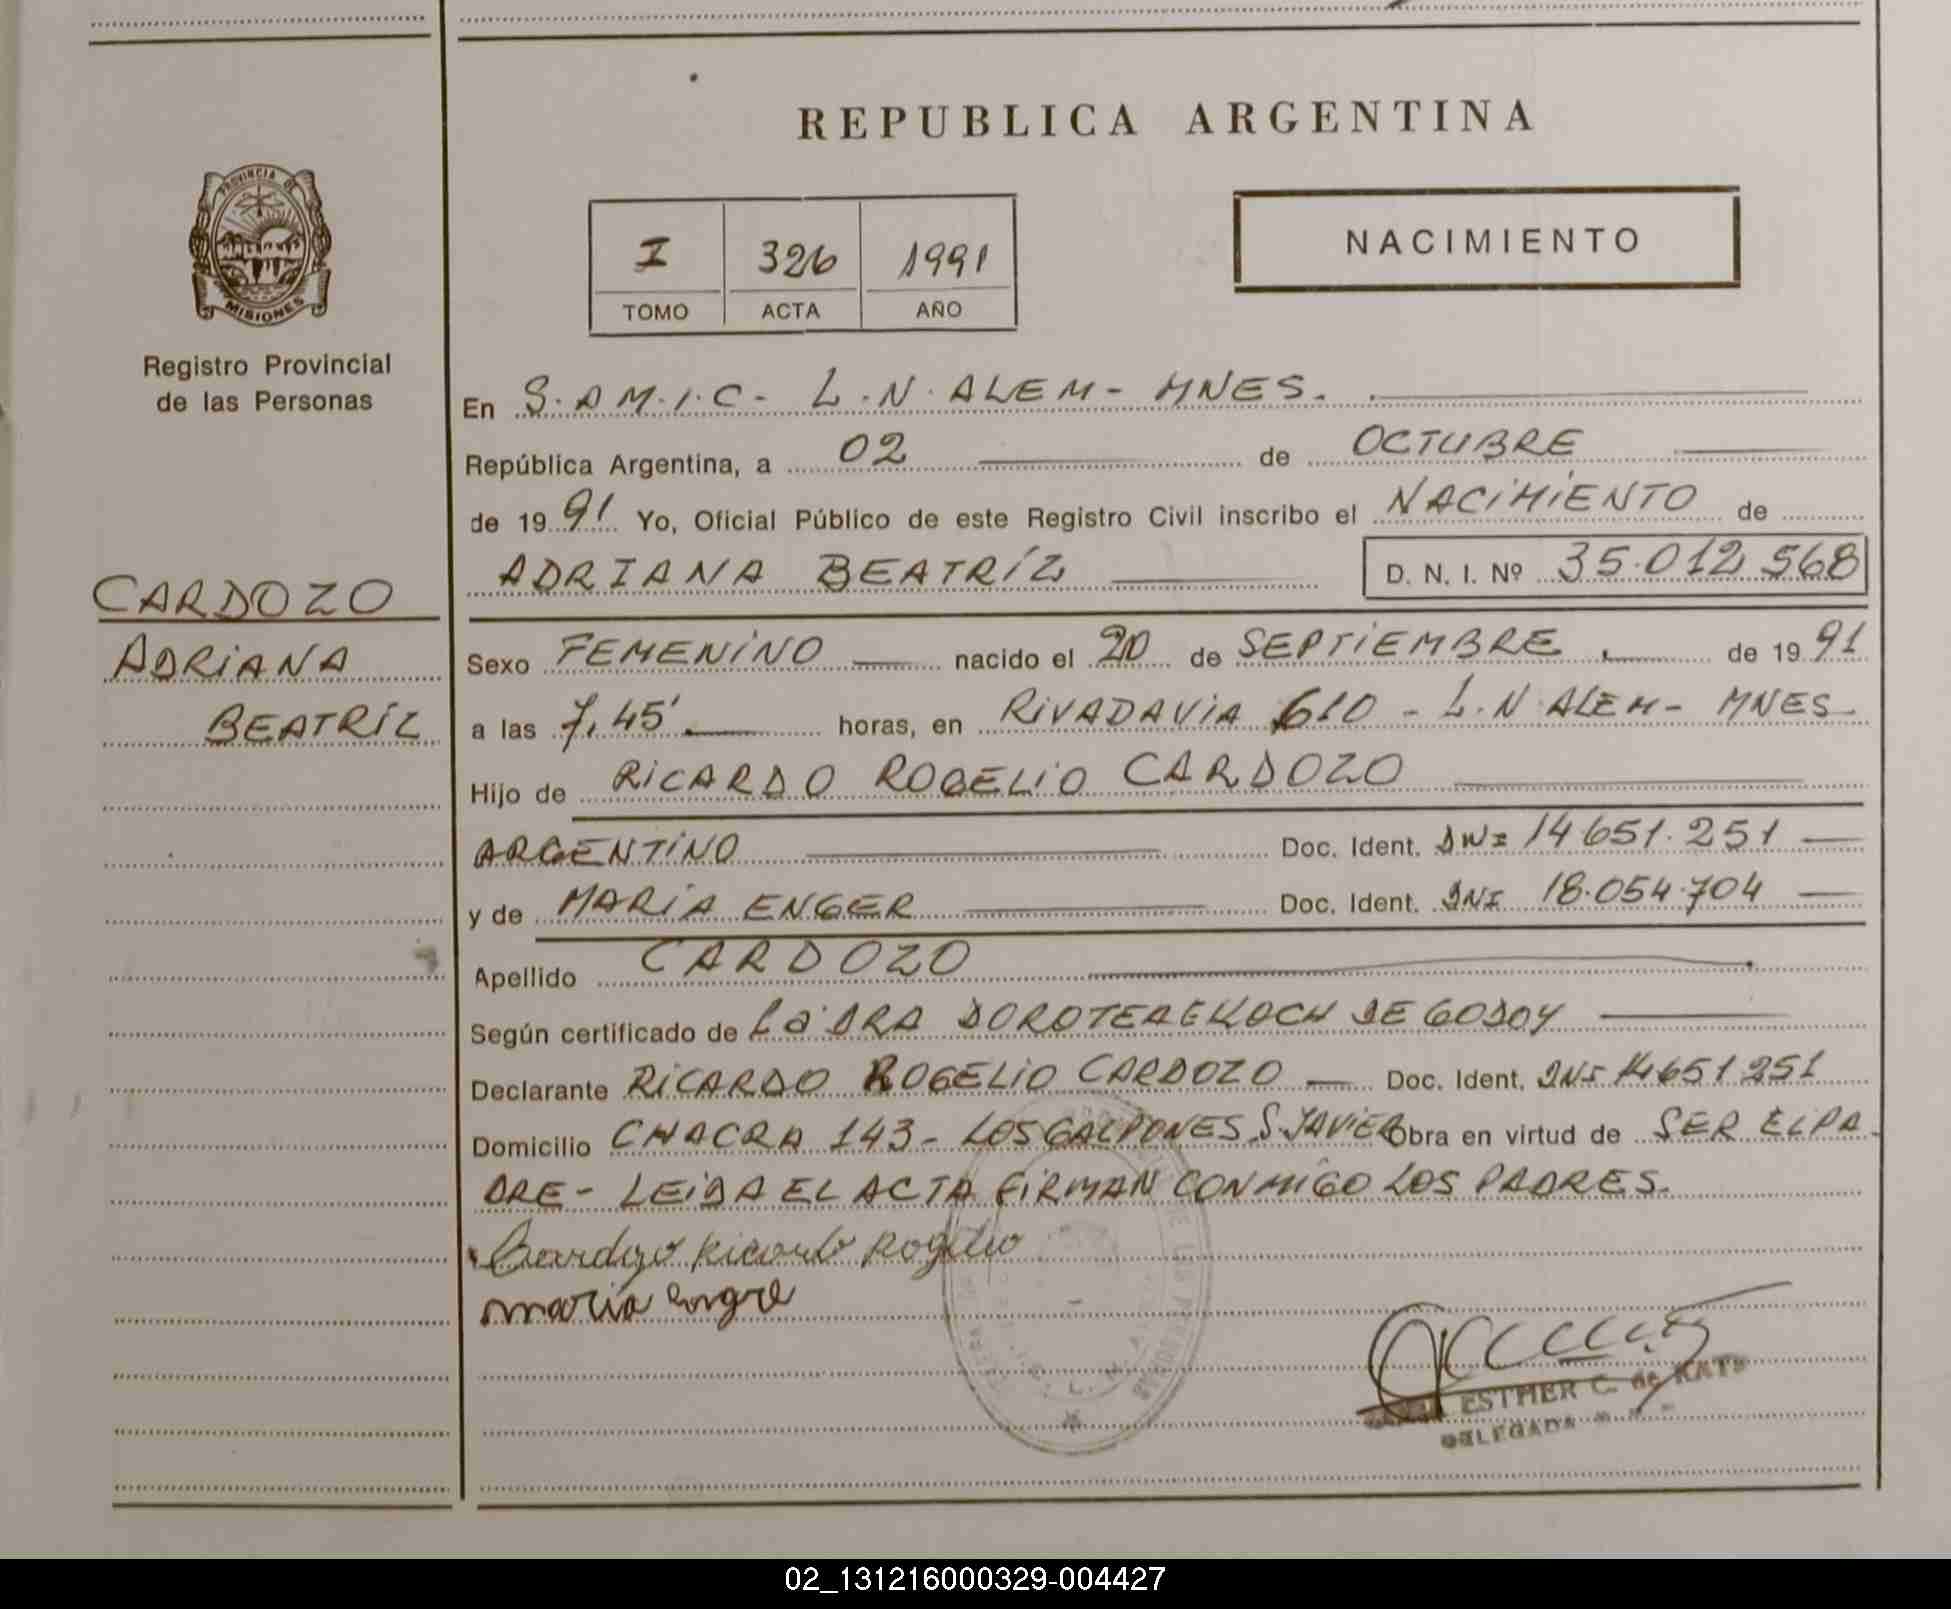 REPUBLICA ARGENTINA
PROVINCIA DE
MISIONES
Registro Provincial
de las Personas
I 326 1991
TOMO ACTA AÑO
NACIMIENTO
CARDOZO
ADRIANA
BEATRÍZ
En S.A.M.I.C- L.N.ALEM- MNES.
República Argentina, a 02 de OCTUBRE
de 1991 Yo, Oficial Público de este Registro Civil inscribo el NACIMIENTO de
ADRIANA BEATRÍZ D. N. I. Nº 35.012.568
Sexo FEMENINO nacido el 20 de SEPTIEMBRE de 1991
a las 7,45' horas, en RIVADAVIA 610 - L.N ALEM- MNES
Hijo de RICARDO ROGELIO CARDOZO
ARGENTINO Doc. Ident. DNI 14651.251
y de MARIA ENGER Doc. Ident. DNI 18.054.704
Apellido CARDOZO
Según certificado de La DRA DOROTEA E KOCH DE GODOY
Declarante RICARDO ROGELIO CARDOZO Doc. Ident. DNI 14651251
Domicilio CHACRA 143- LOS GALPONES S.JAVIER Obra en virtud de SER EL PA-
DRE- LEIDA EL ACTA FIRMAN CONMIGO LOS PADRES.
Cardozo Ricardo Rogelio
maria
ESTHER C. de KATZ
DELEGADA
02_131216000329-004427